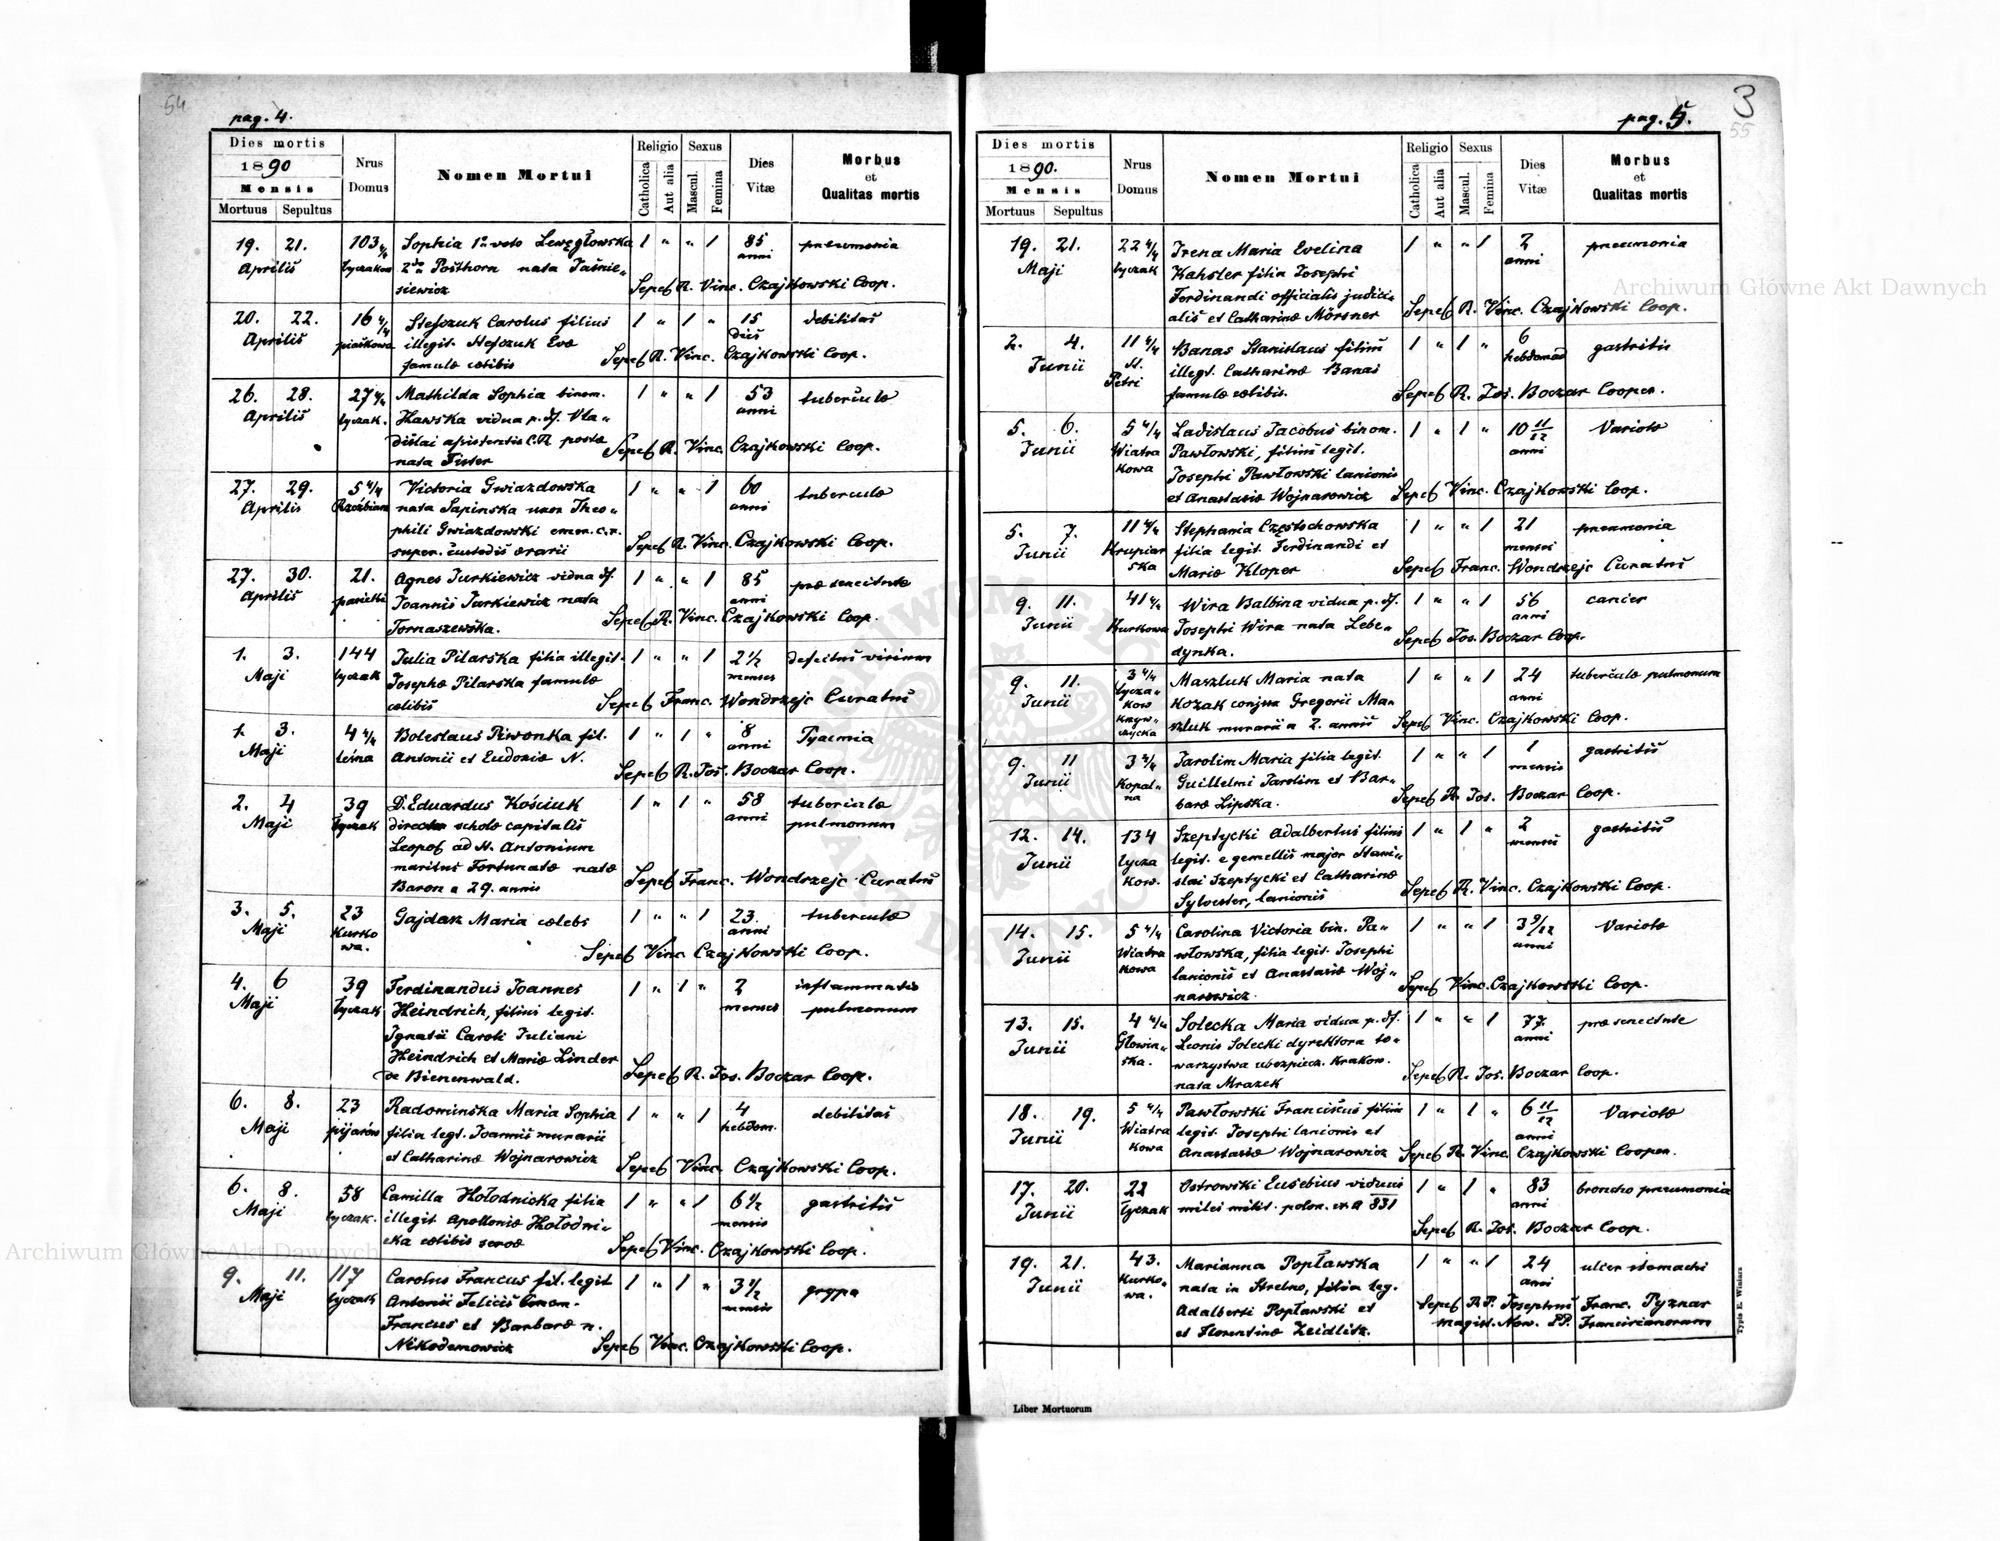 54
pag. 4.
Dies mortis
1890
Mensis
Mortuus Sepultus
Nrus Domus
Nomen Mortui
Religio
Catholica
Aut alia
Sexus
Mascul.
Femina
Dies Vitæ
Morbus
et
Qualitas mortis
19. 21. 103 4/4 Sophia 1º voto Lewęgłowska 1 " " 1 85 pneumonia
Aprilis Lyczakow 2do Posthorn nata Jaśnie„ anni
siewicz Sepel. R. Vinc. Czajkowski Coop.
20. 22. 16 4/4 Stefczuk Carolus filius 1 " 1 " 15 debilitas
Aprilis piaskowa illegit. Stefczuk Evæ dies
famulæ cœlibis Sepel. R. Vinc. Czajkowski Coop.
26. 28. 27 4/4 Mathilda Sophia binom. 1 " " 1 53 tuberculæ
Aprilis Lyczak. Hawska vidua p. df. Vla„ anni
dislai assistentis C.R. postæ Sepel. R. Vinc. Czajkowski Coop.
nata Fister
27. 29. 5 4/4 Victoria Gwiazdowska 1 " " 1 60 tuberculæ
Aprilis nata Sapinska uxor Theo„ anni
phili Gwiazdowski emer. c.r.
super. custodis ærarii Sepel. R. Vinc. Czajkowski Coop.
27. 30. 21. Agnes Jurkiewicz vidua df. 1 " " 1 85 præ senectute
Aprilis pasieki Joannis Jurkiewicz nata anni
Tomaszewska. Sepel. R. Vinc. Czajkowski Coop.
1. 3. 144 Julia Pilarska filia illegit. 1 " " 1 2 1/2 defectus virium
Maji Lyczak Josephæ Pilarska famulæ menses
cœlibis Sepel. Franc. Wondrzejc Curatus
1. 3. 4 4/4 Boleslaus Piwonka fil. 1 " 1 " 8 Pyaemia
Maji leśna Antonii et Eudoxiæ N. anni
Sepel. R. Jos. Boczar Coop.
2. 4 39 D. Eduardus Kościuk 1 " 1 " 58 tuberculæ
Maji Lyczak director scholæ capitalis anni pulmonum
Leopol. ad St. Antonium
maritus Fortunatæ natæ
Baron a 29. annis Sepel. Franc. Wondrzejc Curatus
3. 5. 23 Gajdasz Maria cœlebs 1 " " 1 23. tuberculæ
Maji Kurko anni
wa. Sepel. Vinc. Czajkowski Coop.
4. 6 39 Ferdinandus Joannes 1 " 1 " 2 inflammatio
Maji Lyczak Heindrich, filius legit. menses pulmonum
Ignatii Caroli Juliani
Heindrich et Mariæ Linder
de Bienenwald. Sepel. R. Jos. Boczar Coop.
6. 8. 23 Radominska Maria Sophia 1 " " 1 4 debilitas
Maji pijarów filia legt. Joannis murarii hebdom.
et Catharinæ Wojnarowicz Sepel. Vinc. Czajkowski Coop.
6. 8. 58 Camilla Hołodnicka filia 1 " " 1 6 1/2 gastritis
Maji Lyczak. illegit Apolloniæ Hołodni„ mensis
cka cœlibis servæ Sepel. Vinc. Czajkowski Coop.
9. 11. 117 Carolus Francus fil. legit 1 " 1 " 3 1/2 grypa
Maji Lyczak Antonii Felicis binom. mensis
Francus et Barbaræ n.
Nikodemowicz Sepel. Vinc. Czajkowski Coop.
3
55
pag. 5.
Dies mortis
1890.
Mensis
Mortuus Sepultus
Nrus Domus
Nomen Mortui
Religio
Catholica
Aut alia
Sexus
Mascul.
Femina
Dies Vitæ
Morbus
et
Qualitas mortis
19. 21. 22 4/4 Irena Maria Evelina 1 " " 1 2 pneumonia
Maji Lyczak Kahsler filia Josephi anni
Ferdinandi officialis judici„
alis et Catharinæ Mörsner Sepel. R. Vinc. Czajkowski Coop.
2. 4. 11 4/4 Banas Stanislaus filius 1 " 1 " 6 gastritis
Junii St. Petri illegt. Catharinæ Banas hebdomad
famulæ cœlibis. Sepel. R. Jos. Boczar Cooper.
5. 6. 5 4/4 Ladislaus Jacobus binom. 1 " 1 " 10 11/12 Variolæ
Junii Wiatra Pawłowski, filius legit. anni
kowa Josephi Pawłowski lanionis
et Anastasiæ Wojnarowicz Sepel. Vinc. Czajkowski Coop.
5. 7. 11 4/4 Stephania Częstochowska 1 " " 1 21 pneumonia
Junii Krupiar filia legit. Ferdinandi et menses
ska Mariæ Kloper Sepel. Franc. Wondrzejc Curatus
9. 11. 41 4/4 Wira Balbina vidua p. df. 1 " " 1 56 cancer
Junii Kurkowa Josephi Wira nata Lebe„ anni
dynka. Sepel. Jos. Boczar Coop.
9. 11. 3 4/4 Maszluk Maria nata 1 " " 1 24 tuberculæ pulmonum
Junii Lycza„ Kozak conjux Gregorii Ma„ anni
kow szluk murarii a 2. annis Sepel. Vinc. Czajkowski Coop.
krzyw„
czycka
9. 11 3 4/4 Jarolim Maria filia legit. 1 " " 1 1 gastritis
Junii Kopal„ Guillelmi Jarolim et Bar„ mensis
na baræ Lipska. Sepel. R. Jos. Boczar Coop.
12. 14. 134 Szeptycki Adalbertus filius 1 " 1 " 2 gastritis
Junii Lycza legit. e gemellis major Stani„ menses
kow. slai Szeptycki et Catharinæ
Sylvester, lanionis Sepel. R. Vinc. Czajkowski Coop.
14. 15. 5 4/4 Carolina Victoria bin. Pa„ 1 " " 1 3 9/12 Variolæ
Junii Wiatra włowska, filia legit. Josephi anni
kowa lanionis et Anastasiæ Woj„
narowicz. Sepel. Vinc. Czajkowski Coop.
13. 15. 4 4/4 Solecka Maria vidua p. df. 1 " " 1 77. præ senectute
Junii Głowiń„ Leonis Solecki dyrektora to„ anni
ska. warzystwa ubezpiecz. Krakow.
nata Mrazek Sepel. R. Jos. Boczar Coop.
18. 19. 5 4/4 Pawłowski Franciscus filius 1 " 1 " 6 11/12 Variolæ
Junii Wiatra legit. Josephi lanionis et anni
kowa Anastasiæ Wojnarowicz Sepel. R. Vinc. Czajkowski Cooper.
17. 20. 22 Ostrowski Eusebius viduus 1 " 1 " 83 broncho pneumonia
Junii Lyczak miles milit. polon. ex a 831 anni
Sepel. R. Jos. Boczar Coop.
19. 21. 43. Marianna Popławska 1 " " 1 24 ulcer stomachi
Junii Kurko„ nata in Strelno, filia leg. anni
wa. Adalberti Popławski et Sepel. R.P. Josephus Franc. Pyznar
et Florentinæ Zeidlitz. magist. Nov. PP. Franciscanorum
Typis E. Winiarz
Liber Mortuorum
Archiwum Główne Akt Dawnych
Archiwum Główne Akt Dawnych
ARCHIWUM GŁ
AKT DAWNYCH